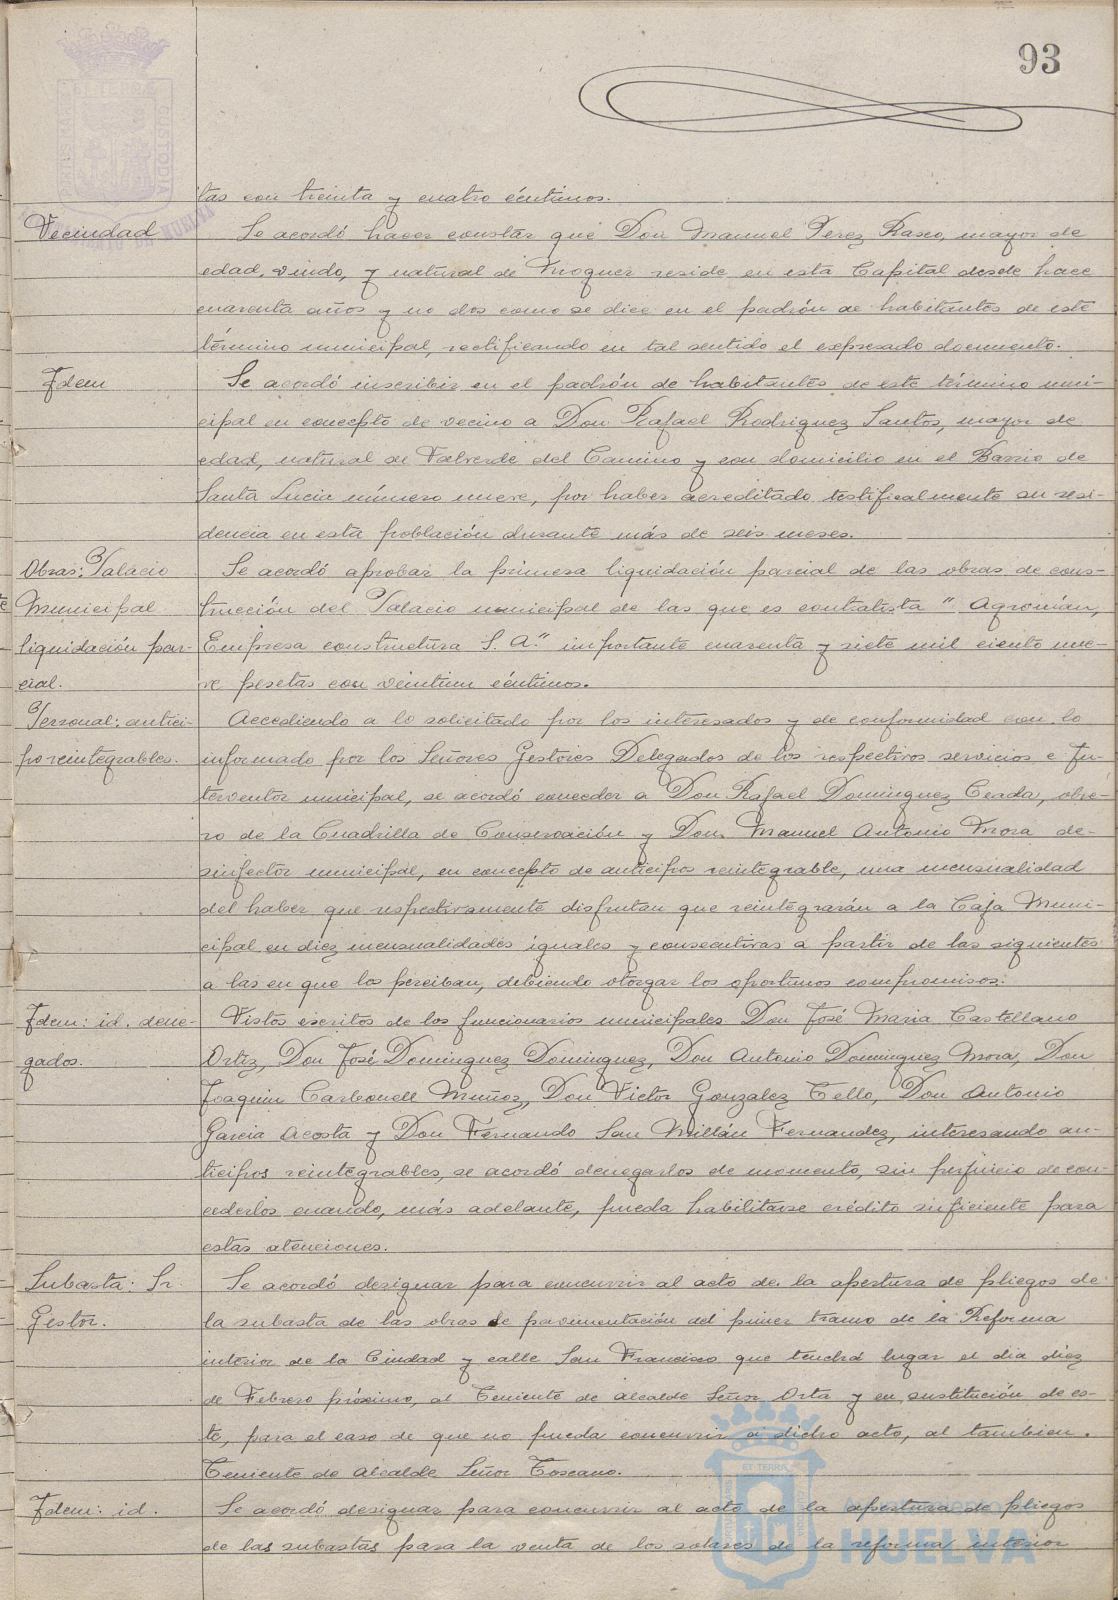 93
tas con treinta y cuatro céntimos.
Vecindad
Se acordó hacer constar que Don Manuel Perez Rasco, mayor de
edad, viudo, y natural de Moguer reside en esta Capital desde hace
cuarenta años y no dos como se dice en el padrón de habitantes de este
término municipal, rectificando en tal sentido el expresado documento.
Idem
Se acordó inscribir en el padrón de habitantes de este término muni-
cipal en concepto de vecino a Don Rafael Rodriguez Santos, mayor de
edad, natural de Valverde del Camino y con domicilio en el Barrio de
Santa Lucia número nueve, por haber acreditado testificalmente su resi-
dencia en esta población durante más de seis meses.
Obras: Palacio
Municipal
liquidación par-
cial.
Se acordó aprobar la primera liquidación parcial de las obras de cons-
trucción del Palacio municipal de las que es contratista " Agromán,
Empresa constructura S. A." importante cuarenta y siete mil ciento nue-
ve pesetas con veintiun céntimos.
Personal: antici-
po reintegrables.
Accediendo a lo solicitado por los interesados y de conformidad con lo
informado por los Señores Gestores Delegados de los respectivos servicios e In-
terventor municipal, se acordó conceder a Don Rafael Dominguez Cerda, obre-
ro de la Cuadrilla de Conservación y Don Manuel Antonio Mora de-
sinfector municipal, en concepto de anticipos reintegrable, una mensualidad
del haber que respectivamente disfrutan que reintegrarán a la Caja Muni-
cipal en diez mensualidades iguales y consecutivas a partir de las siguientes
a las en que los perciban, debiendo otorgar los oportunos compromisos.
Idem: id. dene-
gados.
Vistos escritos de los funcionarios municipales Don José Maria Castellano
Ortiz, Don José Dominguez Dominguez, Don Antonio Dominguez Mora, Don
Joaquin Carbonell Muñoz, Don Victor Gonzalez Tello, Don Antonio
Garcia Acosta y Don Fernando San Millán Fernandez, interesando an-
ticipos reintegrables, se acordó denegarlos de momento, sin perjuicio de con-
cederlos cuando, más adelante, pueda habilitarse crédito suficiente para
estas atenciones.
Subasta: Sr.
Gestor.
Se acordó designar para concurrir al acto de la apertura de pliegos de
la subasta de las obras de pavimentación del primer tramo de la Reforma
interior de la Ciudad y calle San Francisco que tendrá lugar el dia diez
de Febrero próximo, al Teniente de Alcalde Señor Orta y en sustitución de es-
te, para el caso de que no pueda concurrir a dicho acto, al tambien
Teniente de Alcalde Señor Toscano.
Idem: id.
Se acordó designar para concurrir al acto de la apertura de pliegos
de las subastas para la venta de los solares de la reforma interior
PORTUS MARIS ET TERRAE CUSTODIA
AYUNTAMIENTO DE HUELVA
Ayuntamiento de
HUELVA